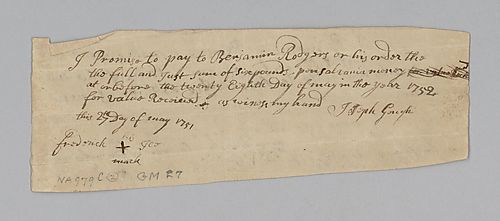 I Promise to pay to Benjamin Rodgers or his order the
the full and Just sum of six pounds pensalvania money
at or before the twenty Eighth Day of may in the year 1752
for value Received as witness my hand
this 28 Day of may 1751
Joseph
his
Frederick + Geo
mark
NA979C GM 27